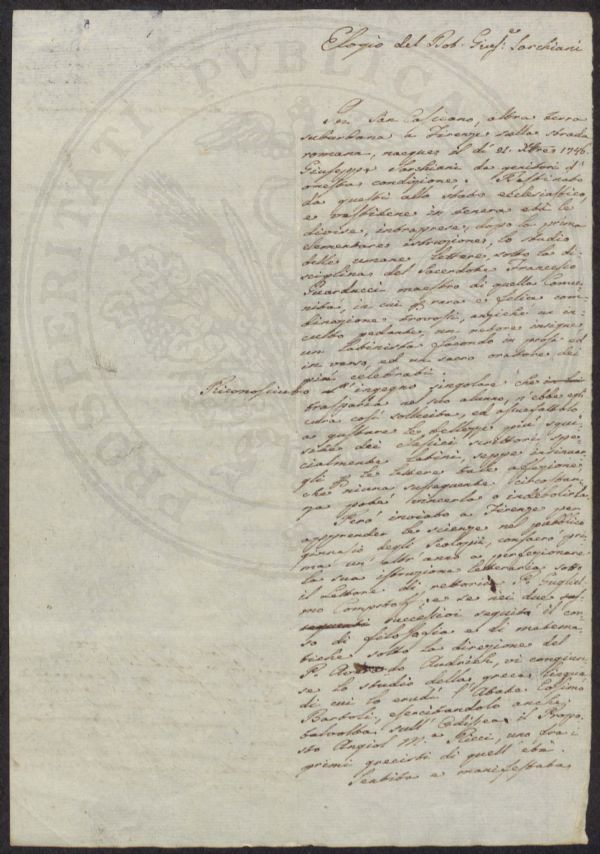 Elogio del Dot. Gius.e Sarchiani
In San Casciano, altra Terra
suburbana a Firenze sulla strada
romana, nacque il dì 21. Xbre 1746.
Giuseppe Sarchiani da genitori d'
onesta condizione. Destinato
da questi allo stato ecclesiastico,
e vestitene in tenera età le
divise, intraprese, dopo la prima
elementare istruzione, lo studio
delle umane lettere sotto la di-
sciplina del Sacerdote Francesco
Guarducci maestro di quella Comu-
nità, in cui p. rara e felice com-
binazione trovossi, anziche un in-
culto pedante, un retore insigne
un latinista facondo in prosa ed
in verso, ed un sacro oratore dei
più celebrati.
Riconosciuto un ingegno singolare che
nel suo alunno, n'ebbe egli
cura così sollecita, ed assuefattolo
a gustare le bellezze più squi-
site dei Classici scrittori, spe-
cialmente latini, seppe insinuar-
gli p. le lettere tale affezione
che niuna susseguente circostan-
za poté vincerla o indebolirla.
Però inviato a Firenze per
apprender le scienze nel pubblico
ginnasio degli Scolopj, consacrò pri-
ma un altr' anno a perfezionare
la sua istruzione letteraria sotto
il lettore di rettorica P. Gugliel-
mo e se nei due sus-
seguenti successivi seguitò il cor-
so di filosofia e di matema-
tiche sotto la direzione del
P. Audrich, vi congiun-
se lo studio della greca lingua
di cui lo erudì l'Abate Cosimo
Bartoli, esercitandolo anche
talvolta sull' Odissea il Propo-
sto Angiol M.a Ricci, uno fra i
primi grecisti di quell' età.
Sentita e manifestata